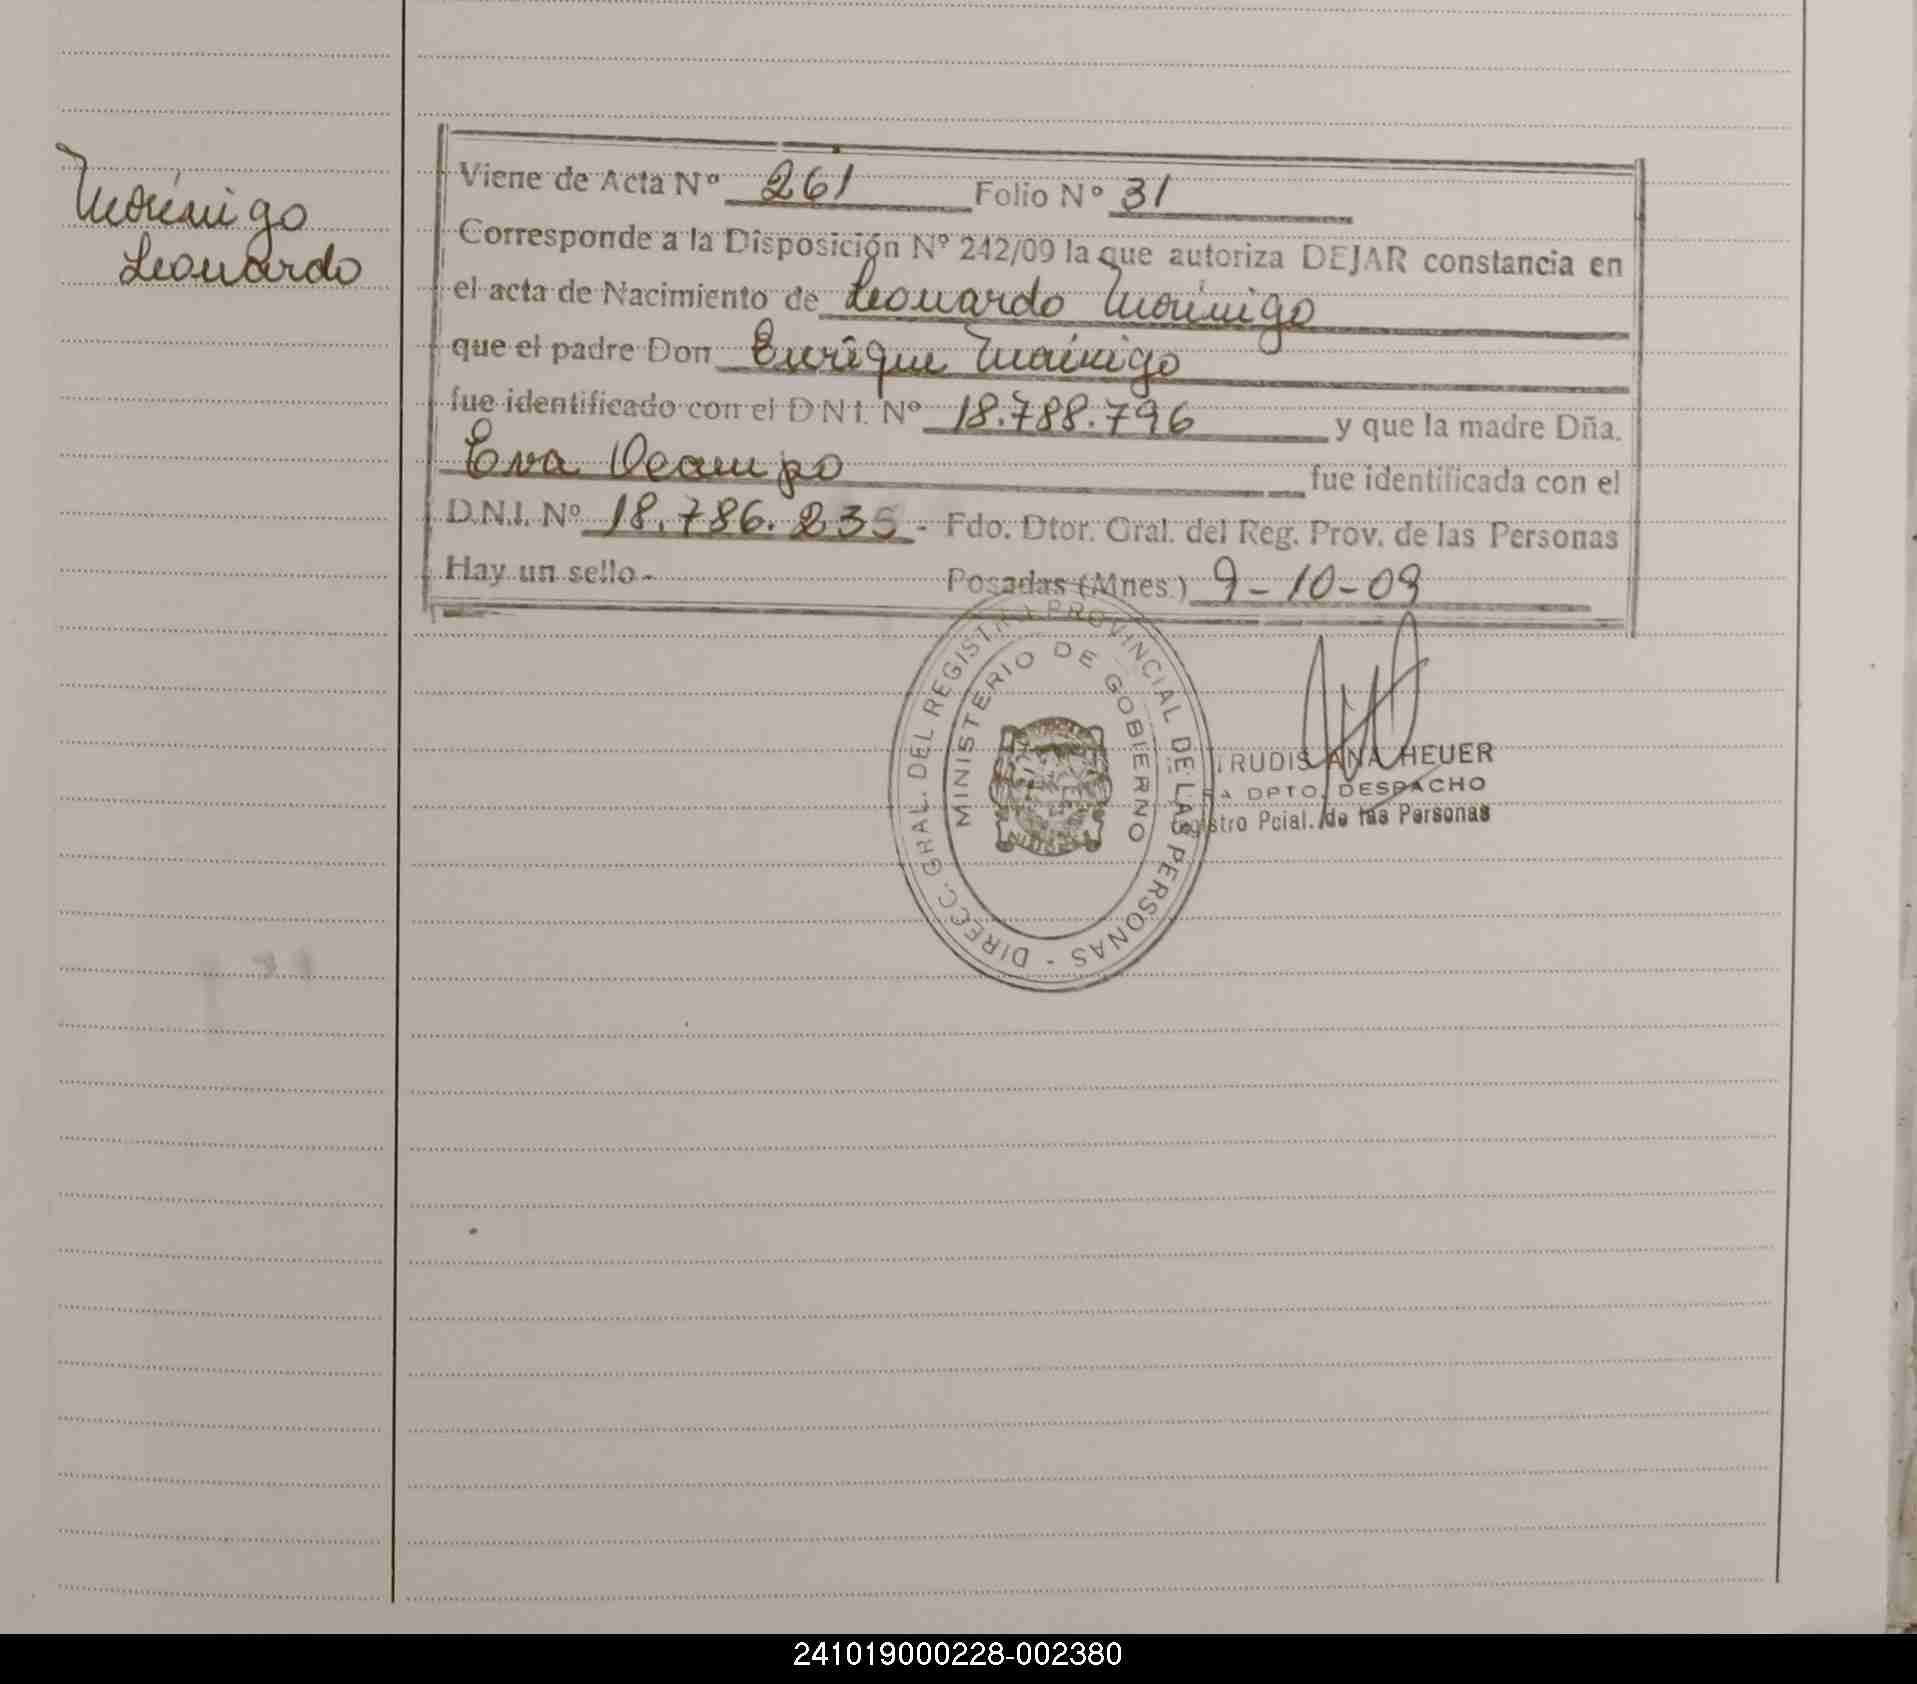 Morinigo
Leonardo
Viene de Acta Nº 261 Folio Nº 31
Corresponde a la Disposición Nº 242/09 la que autoriza DEJAR constancia en
el acta de Nacimiento de Leonardo Morinigo
que el padre Don Enrique Morinigo
fue identificado con el D N I. Nº 18.788.796 y que la madre Dña.
Eva Ocampo fue identificada con el
D.N.I. Nº 18.786.235 - Fdo. Dtor. Gral. del Reg. Prov. de las Personas
Hay un sello - Posadas (Mnes.) 9-10-09
DIRECC. GRAL. DEL REGISTRO PROVINCIAL DE LAS PERSONAS -
MINISTERIO DE GOBIERNO
TRUDIS ANA HEUER
DPTO. DESPACHO
Pcial. de las Personas
241019000228-002380